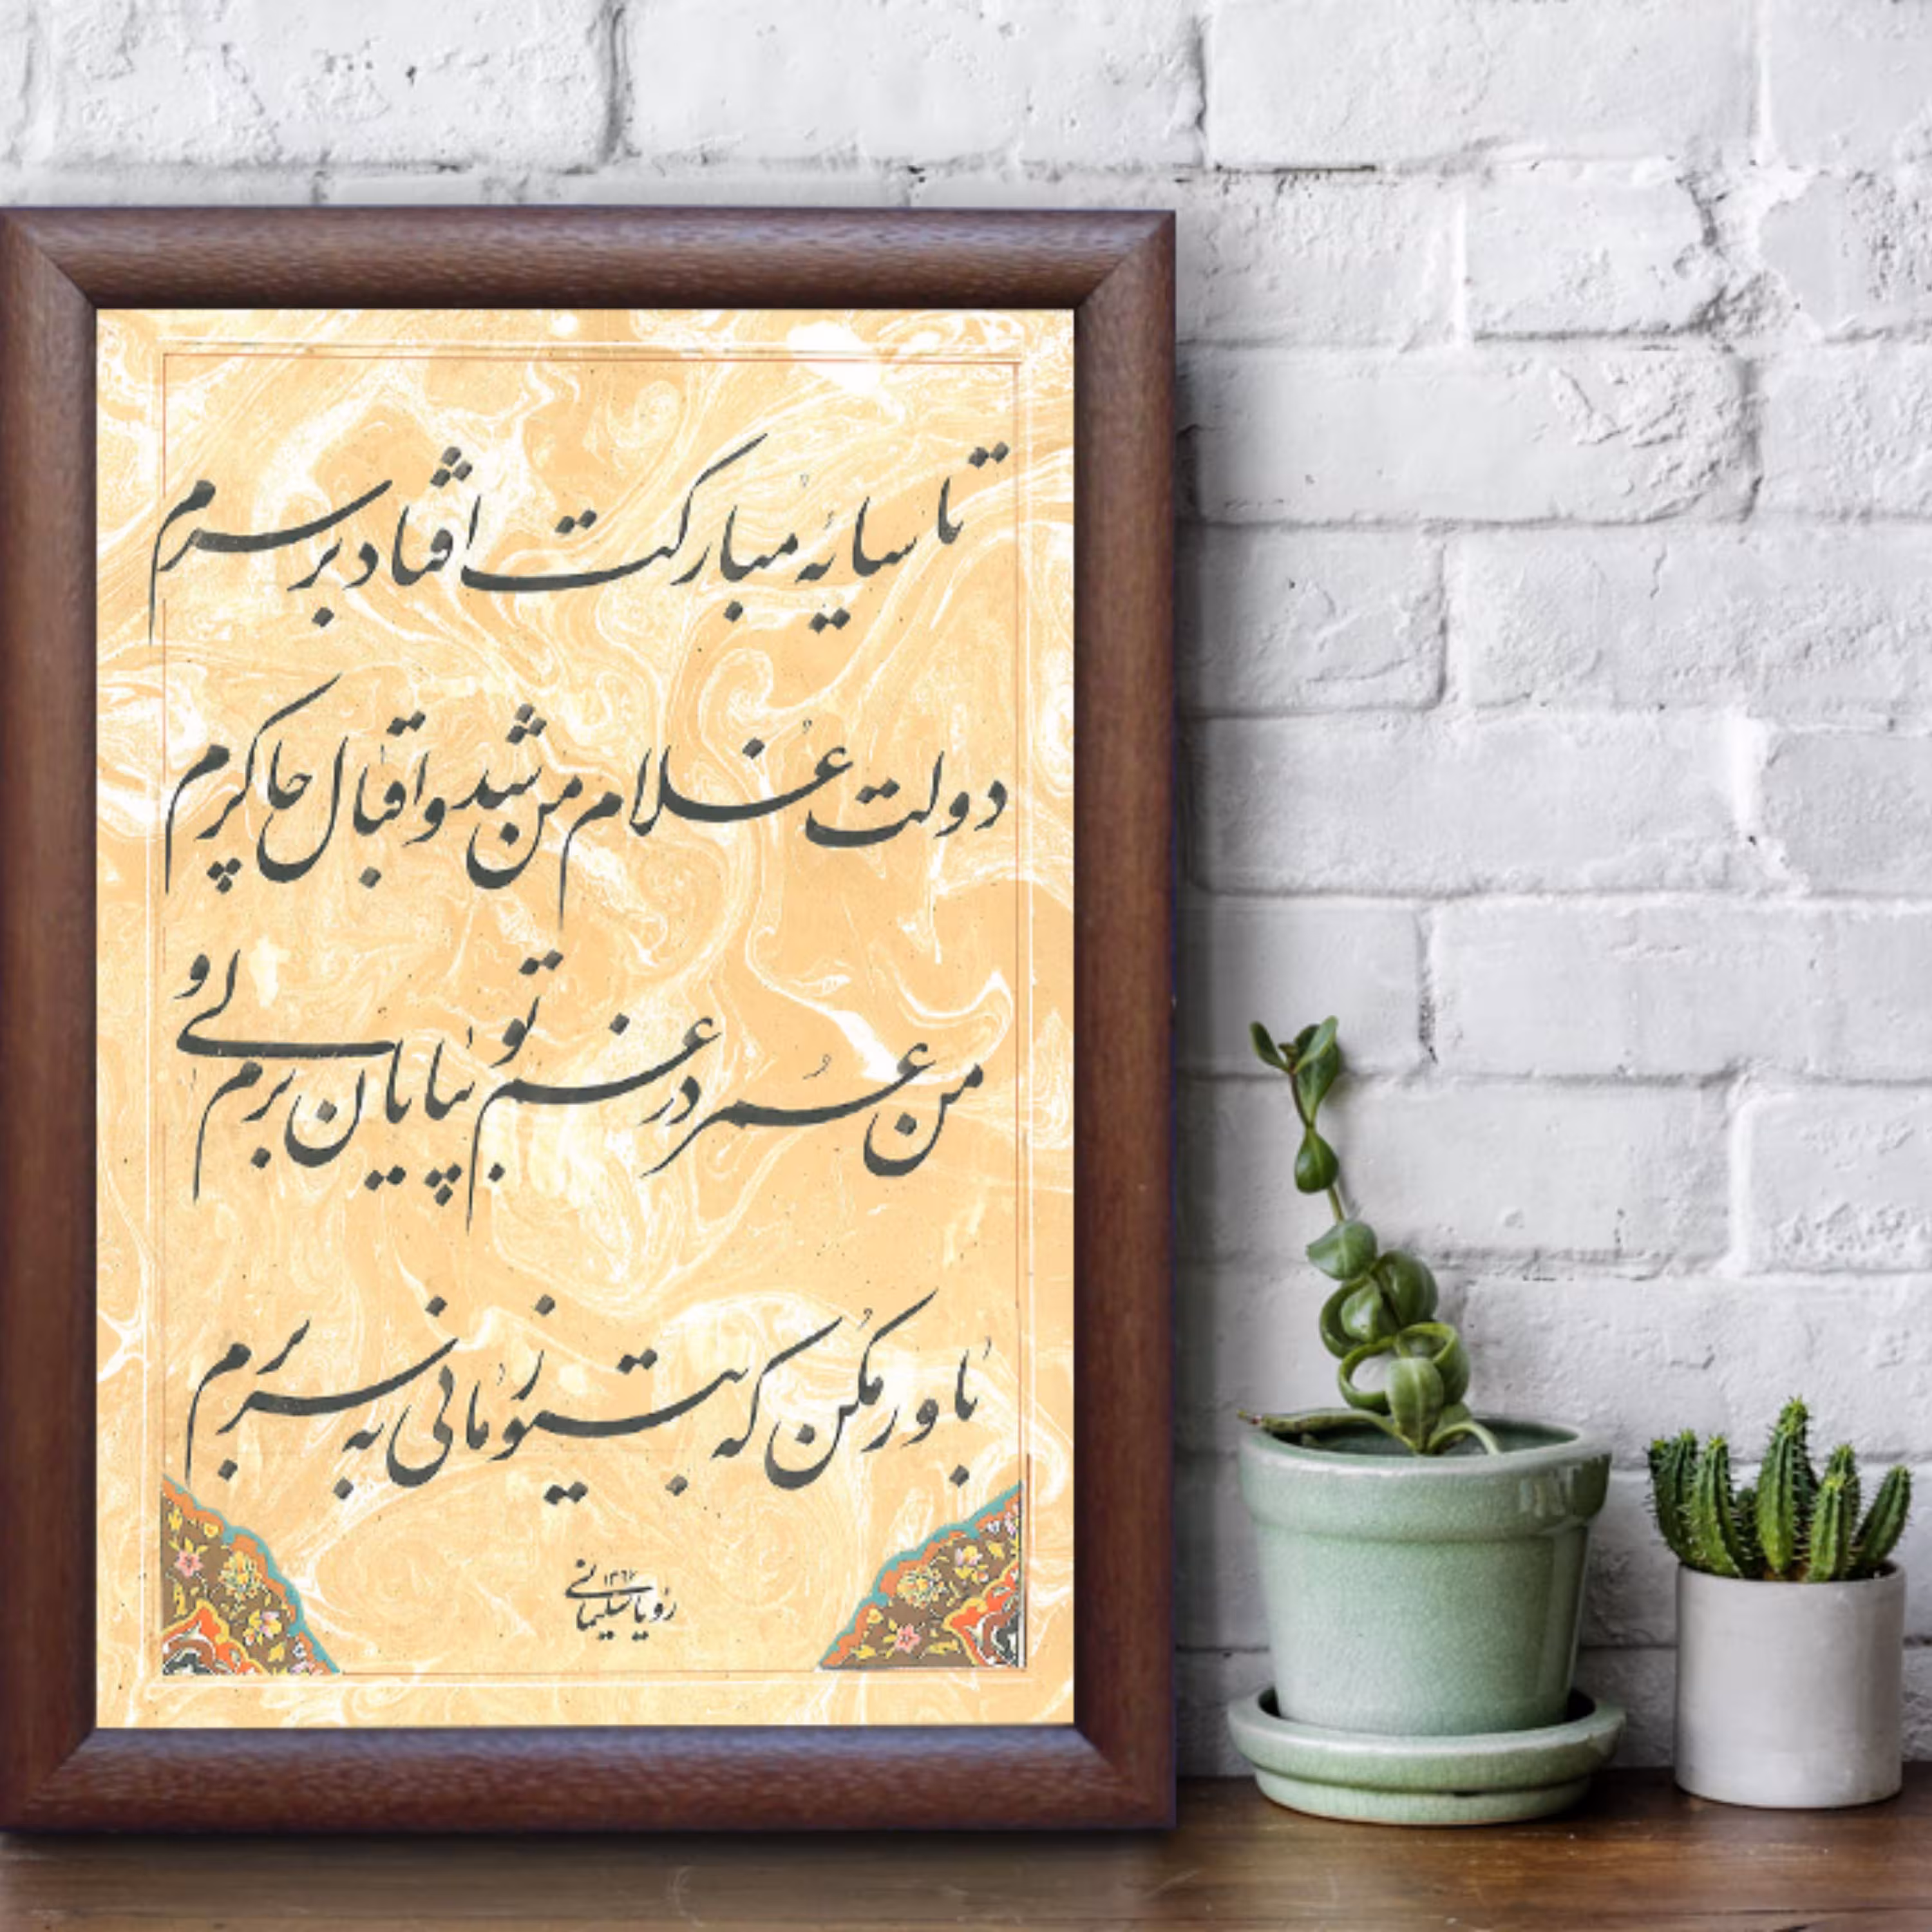 تا سایهٔ مبارکت افتاد بر سرم
دولت غلام من شد و اقبال چاکرم
من عمر در غم تو بپایان برم ولی
باور مکن که بیتو زمانی به سر برم
رویا سلیمانی ۱۳۶۷